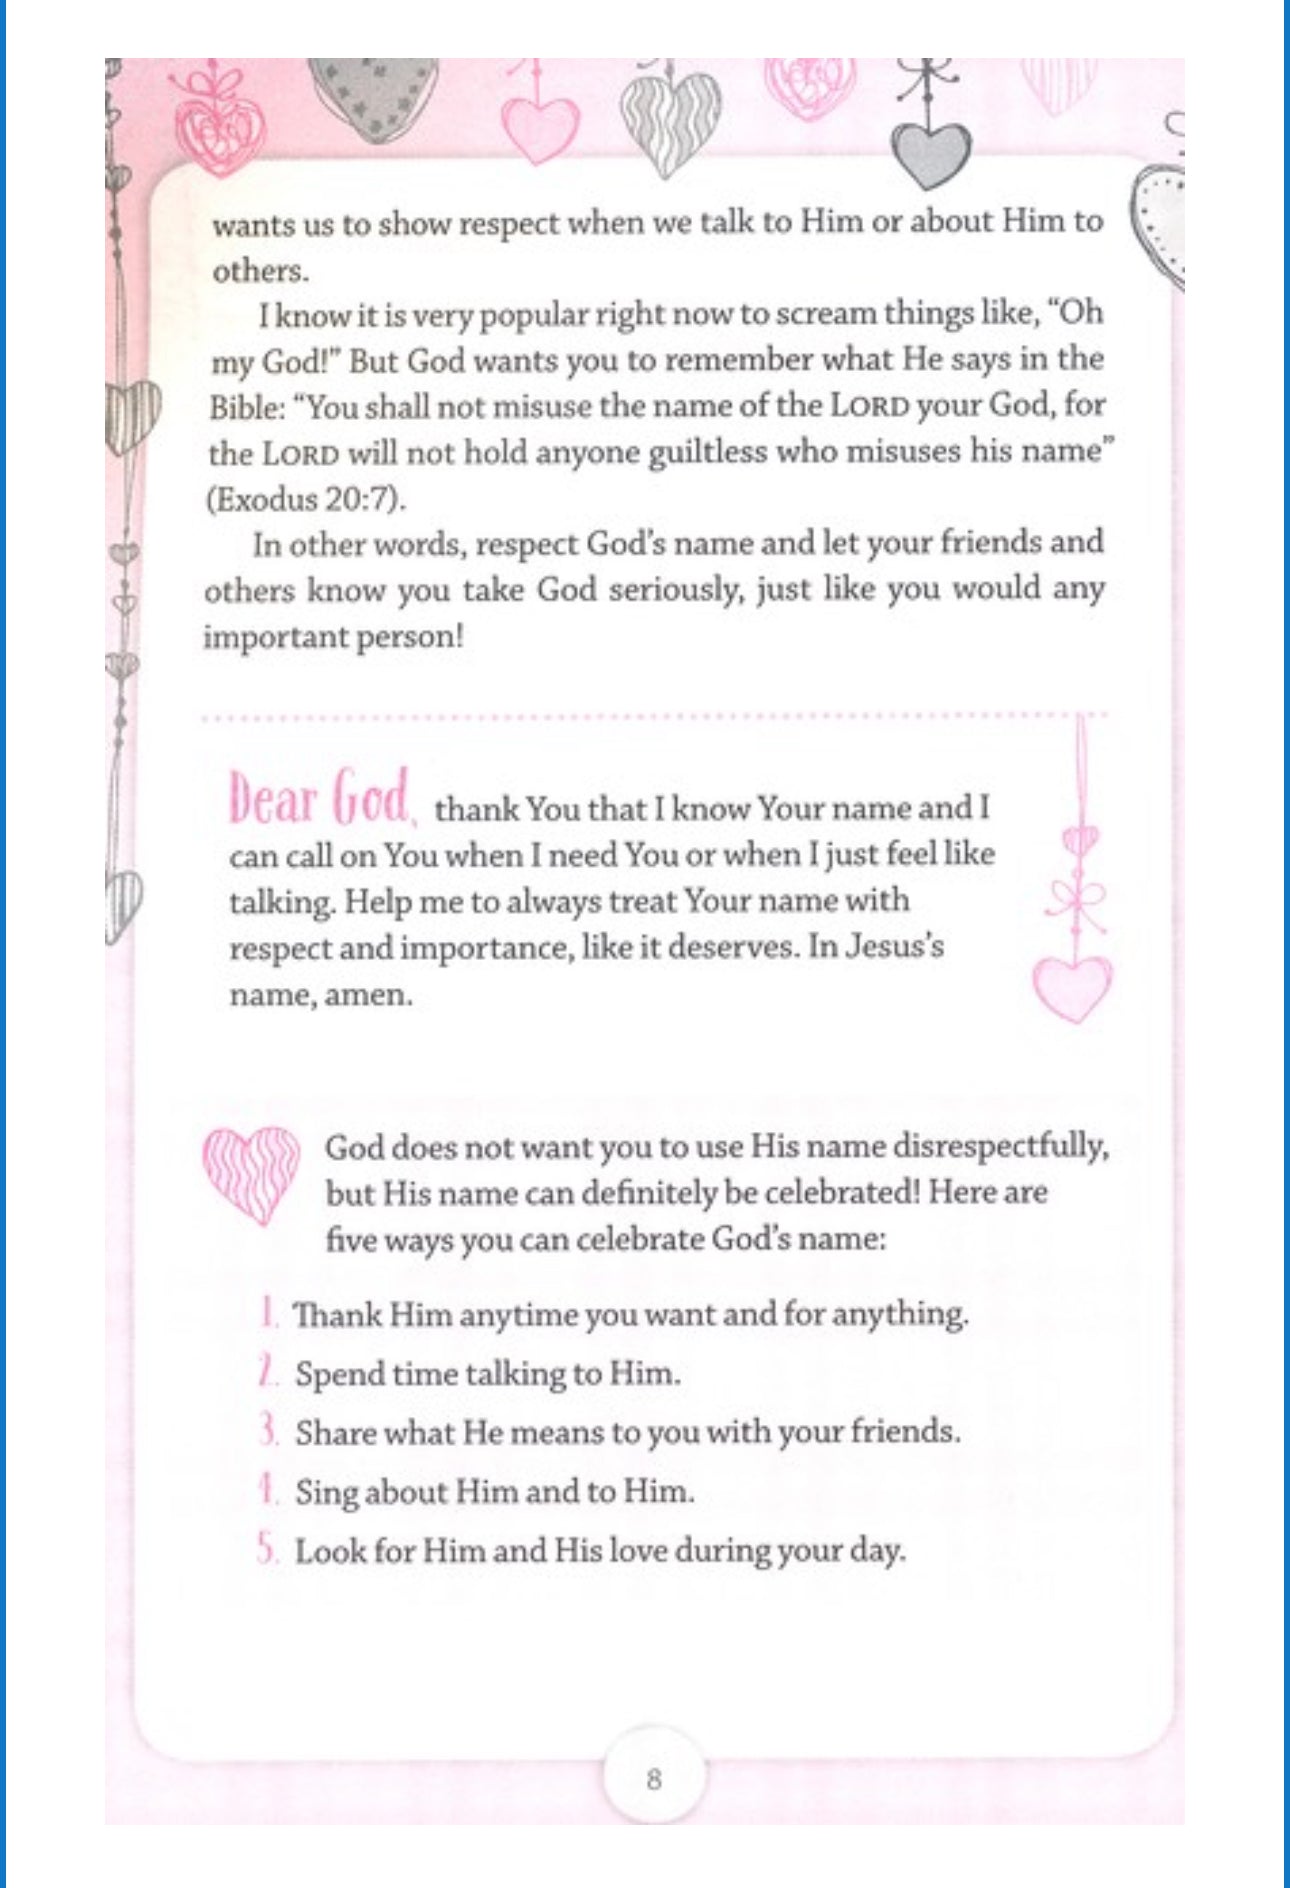 wants us to show respect when we talk to Him or about Him to
others.
I know it is very popular right now to scream things like, “Oh
my God!” But God wants you to remember what He says in the
Bible: “You shall not misuse the name of the LORD your God, for
the LORD will not hold anyone guiltless who misuses his name”
(Exodus 20:7).
In other words, respect God’s name and let your friends and
others know you take God seriously, just like you would any
important person!
Dear God, thank You that I know Your name and I
can call on You when I need You or when I just feel like
talking. Help me to always treat Your name with
respect and importance, like it deserves. In Jesus’s
name, amen.
God does not want you to use His name disrespectfully,
but His name can definitely be celebrated! Here are
five ways you can celebrate God’s name:
1. Thank Him anytime you want and for anything.
2. Spend time talking to Him.
3. Share what He means to you with your friends.
4. Sing about Him and to Him.
5. Look for Him and His love during your day.
8